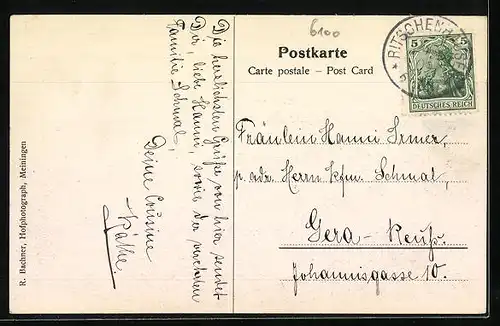 6100
Postkarte
Carte postale – Post Card
5 5
DEUTSCHES REICH
* RITSCHENHAUSEN
Die herzlichsten Grüße von hier sendet
Dir, liebe Hanni, sowie der werthen
Familie Schmal,
Deine Cousine
Käthe
Fräulein Hanni Irmer,
p. adr. Herrn Kfm. Schmal,
Gera-Reuß.
Johannisgasse 10.
R. Bachner, Hofphotograph, Meiningen